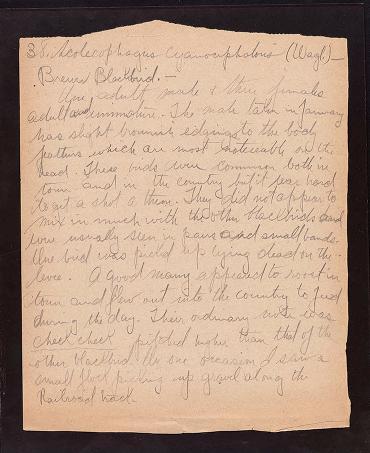 38. Scolecophagus cyanocephalus (Wagl.) —
Brewer Blackbird. —
One adult male & three females
adult and immature. The male taken in January
has slight brownish edgings to the body
feathers which are most noticeable on the
head. These birds were common both in
town and in the country but it was hard
to get a shot a them. They did not appear to
mix in much with the other blackbirds and
were usually seen in pairs and small bands.
One bird was picked up lying dead on the
levee. A good many appeared to roost in
town and flew out into the country to feed
during the day. Their ordinary note was
check check pitched higher than that of the
other blackbird. On one occasion I saw a
small flock picking up gravel along the
Railroad track.